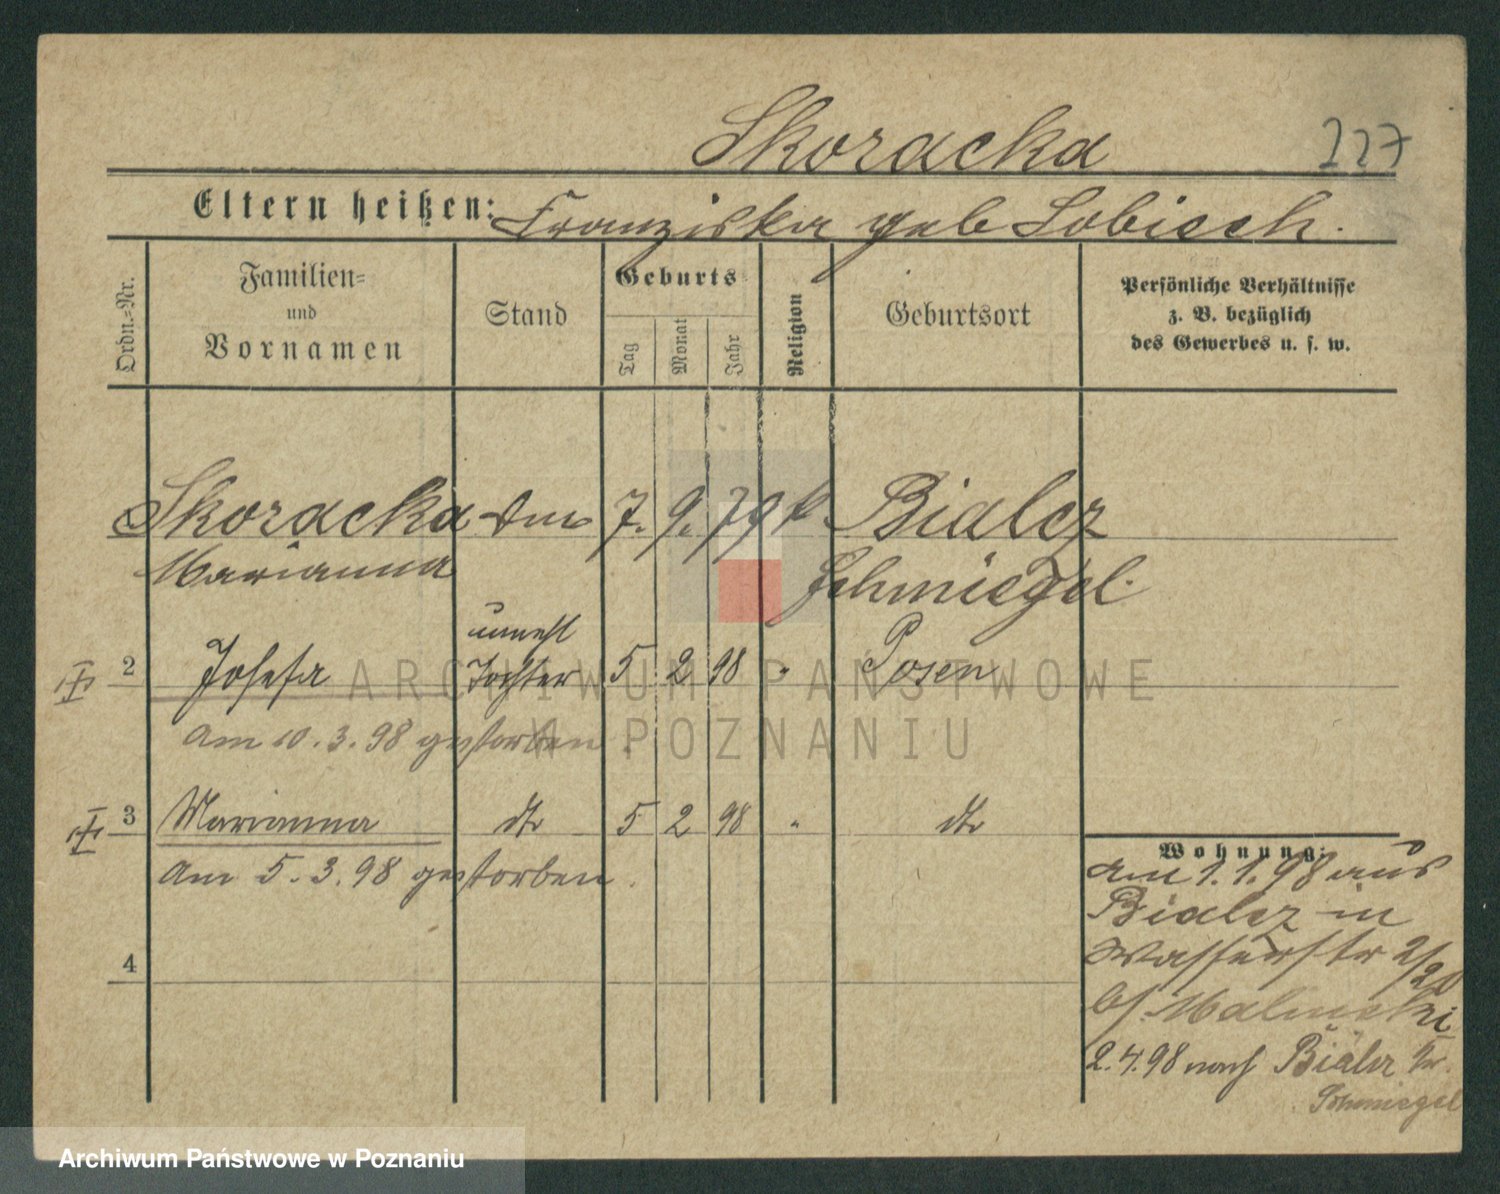 Skoracka
227
Eltern heißen: Franziska geb Lobisch.
Ordn.-Nr.
Familien-
und
Vornamen
Stand
Geburts
Tag
Monat
Jahr
Religion
Geburtsort
Persönliche Verhältnisse
z. B. bezüglich
des Gewerbes u. s. w.
Skoracka 7. 9. 79 k. Bialcz
Marianna Schmiegel.
unehl
2 Josefa Tochter 5 2 98 " Posen
Am 10.3.98 gestorben.
3 Marianna dto 5 2 98 " dto
Am 5.3.98 gestorben.
4
Wohnung:
Am 1.1.98 aus
Bialcz in
Wasserstr 2/20
b/
2.4.98 nach Bialcz Kr.
Schmiegel
ARCHIWUM PAŃSTWOWE
W POZNANIU
Archiwum Państwowe w Poznaniu